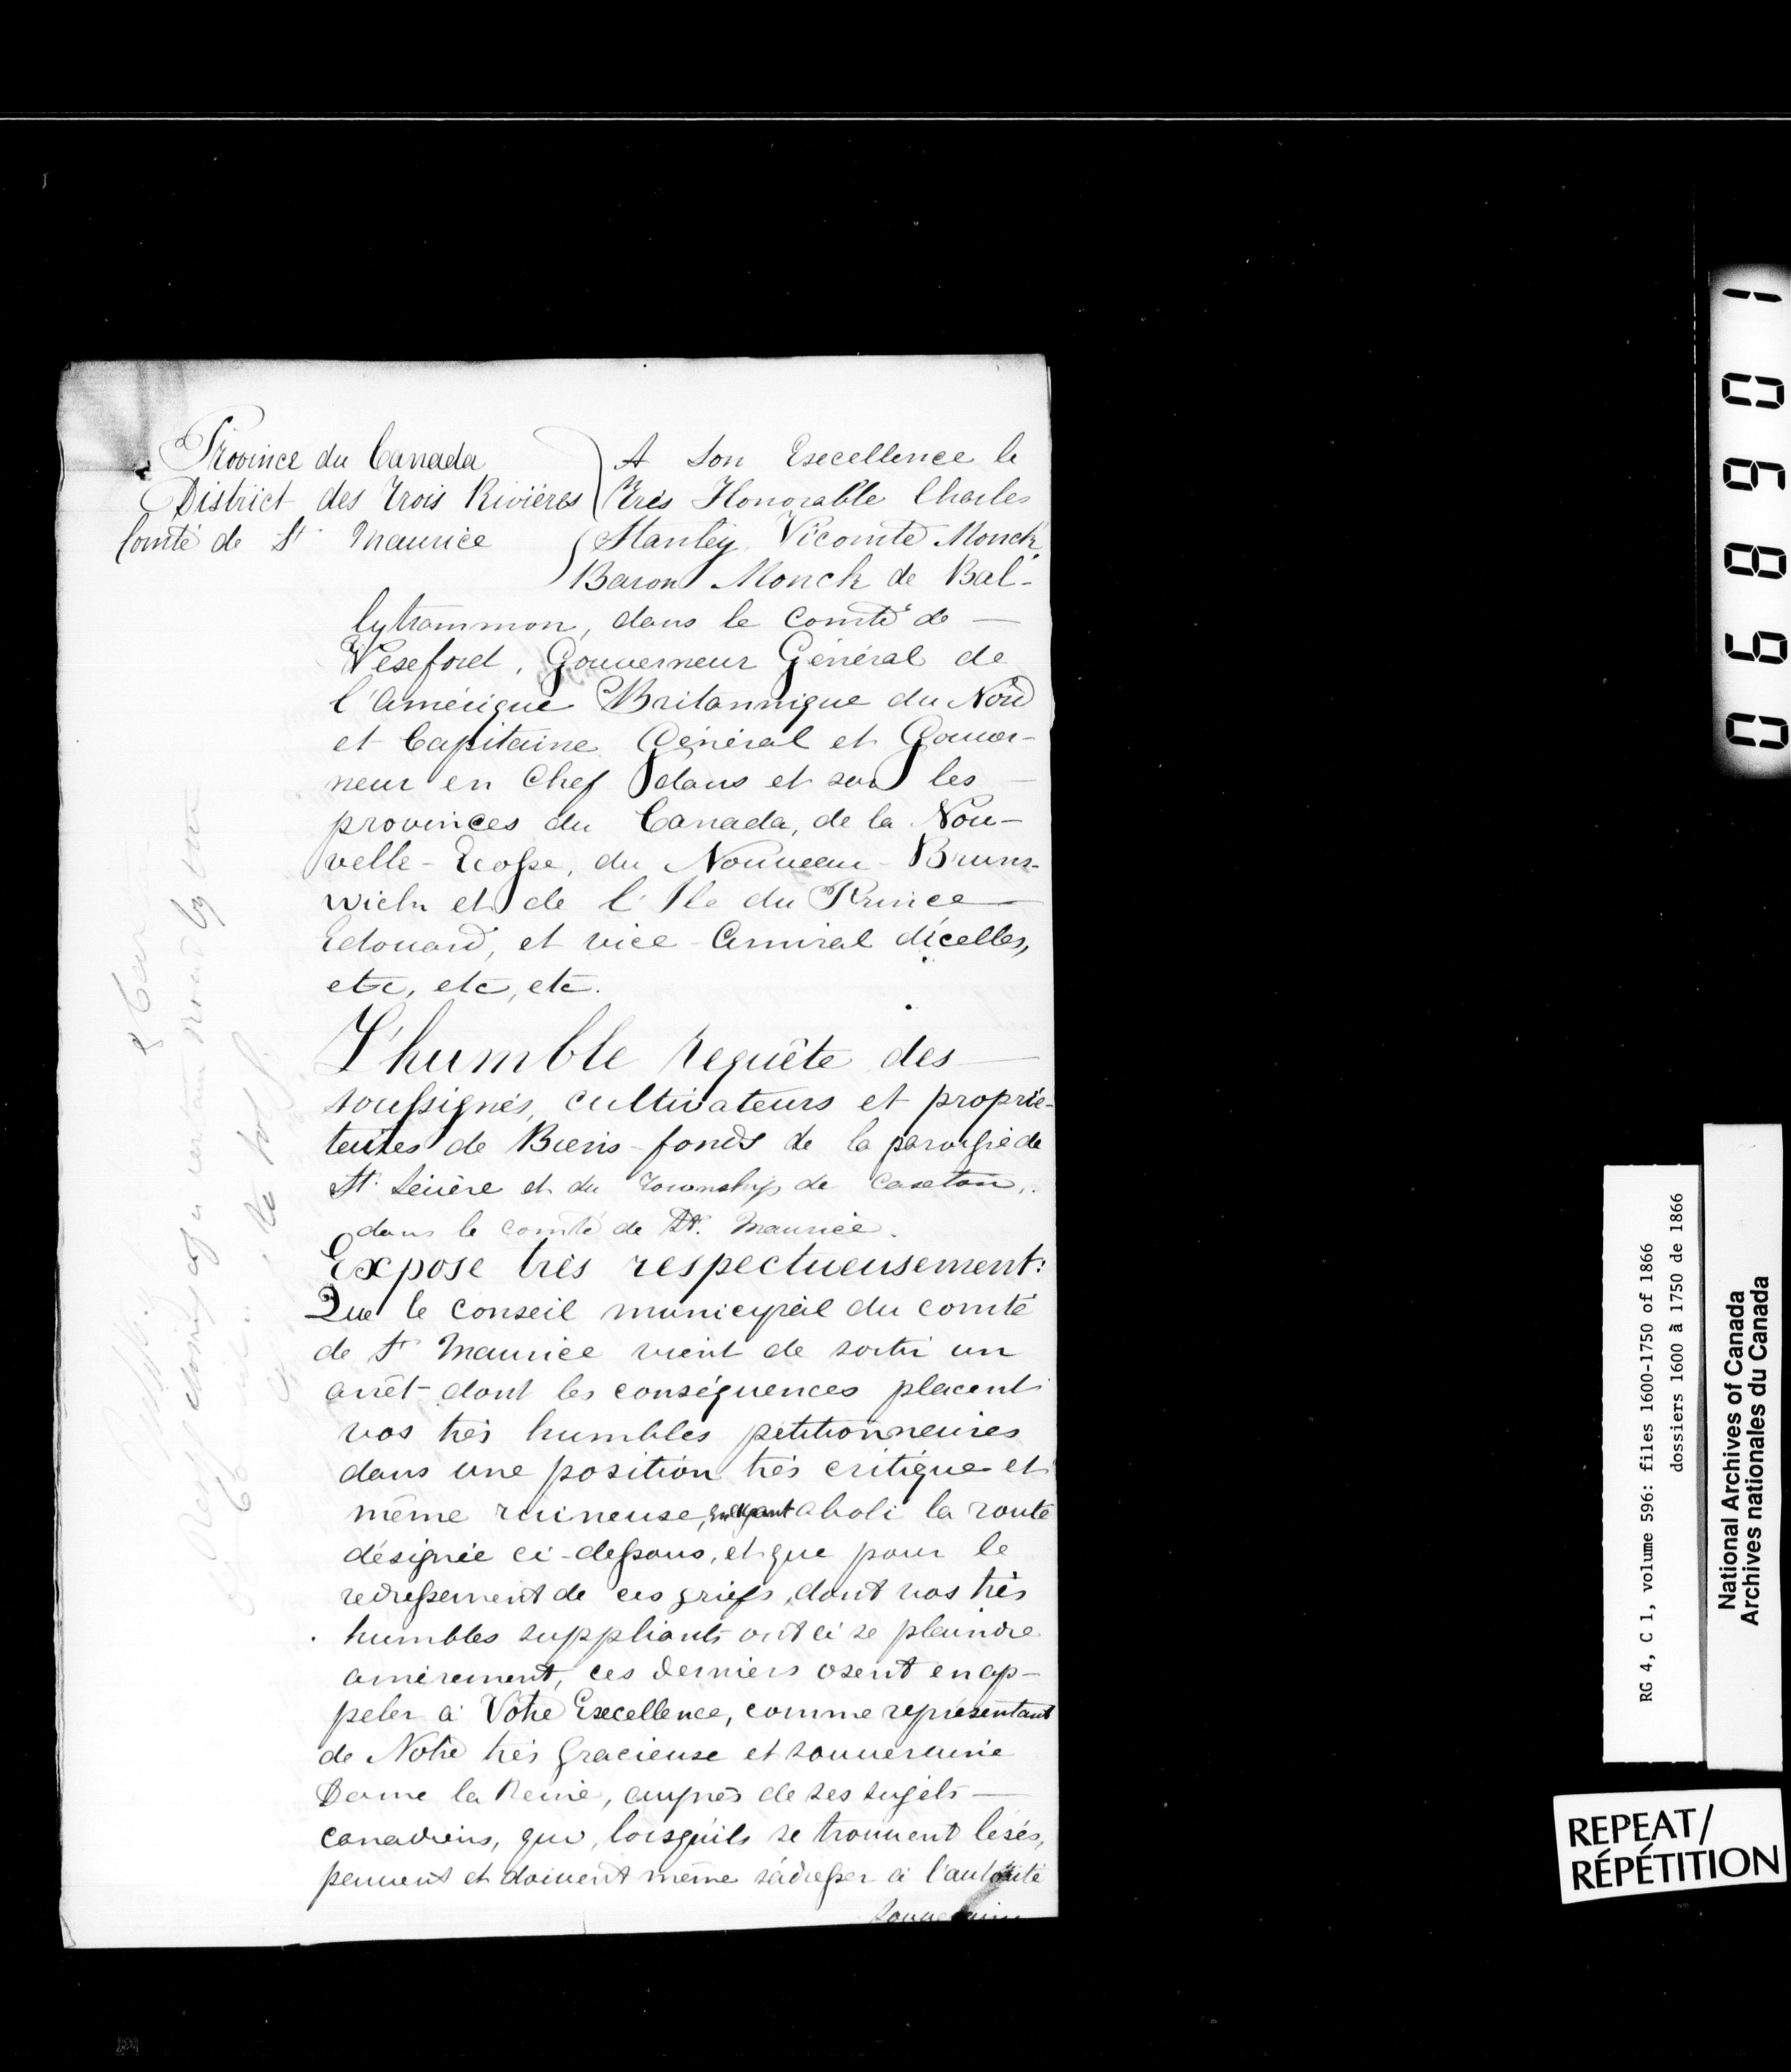 Province du Canada
District des Trois Rivières
Comté de St Maurice
A Son Excellence le
Très Honorable Charles
Stanley, Vicomte Monck,
Baron Monck de Bal-
lytrammon, dans le comté de
Wexford, Gouverneur Général de
l'Amérique Britannique du Nord
et Capitaine Général et Gouver-
neur en Chef dans et sur les
provinces du Canada, de la Nou-
velle-Ecosse, du Nouveau-Bruns-
wick et de l'Ile du Prince
Edouard, et vice-Amiral d'icelles,
etc, etc, etc.
L'humble requête des
soussignés, cultivateurs et proprié-
taires de Biens-fonds de la paroisse de
St. Sévère et du Township de Caxton,
dans le comté de St. Maurice.
Expose très respectueusement:
Que le conseil municipal du comté
de St Maurice vient de sortir un
arrêt dont les conséquences placent
vos très humbles pétitionnaires
dans une position très critique et
même ruineuse, en ayant aboli la route
désignée ci-dessous, et que pour le
redressement de ces griefs, dont vos très
humbles suppliants ont à se plaindre
amèrement, ces derniers osent en ap-
peler à Votre Excellence, comme représentant
de Notre très Gracieuse et souveraine
Dame la Reine, auprès de ses sujets
canadiens, qui, lorsqu'ils se trouvent lésés,
peuvent et doivent même s'adresser à l'autorité
souveraine
068901
RG 4, C 1, volume 596: files 1600-1750 of 1866
dossiers 1600 à 1750 de 1866
National Archives of Canada
Archives nationales du Canada
REPEAT/
RÉPÉTITION